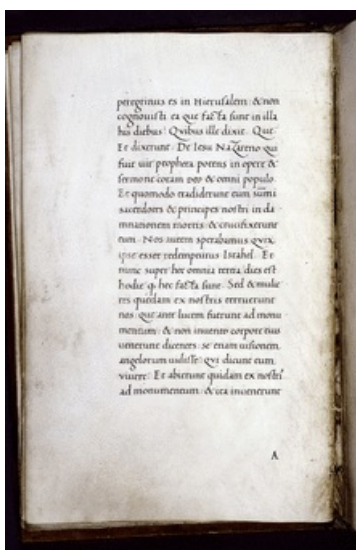 peregrinus es in Hierusalem & non
cognouisti ea que facta sunt in illa
his diebus? Quibus ille dixit. Que?
Et dixerunt. De Iesu Nazareno qui
fuit uir propheta potens in opere &
sermone coram deo & omni populo.
Et quomodo tradiderunt eum summi
sacerdotes & principes nostri in da
mnationem mortis & crucifixerunt
eum. Nos autem sperabamus quia
ipse esset redempturus Israhel. Et
nunc super hec omnia tertia dies est
hodie q hec facta sunt. Sed & mulie
res quedam ex nostris terruerunt
nos que ante lucem fuerunt ad monu
mentum: & non inuento corpore eius
uenerunt dicentes se etiam uisionem
angelorum uidisse: qui dicunt eum
uiuere. Et abierunt quidam ex nostris
ad monumentum: & ita inuenerunt
A